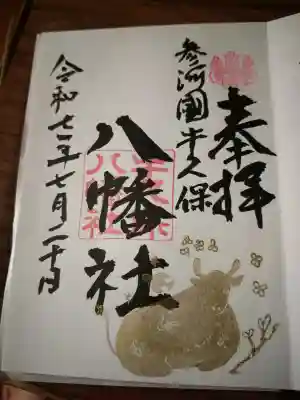 奉拝
参河國牛久保
八幡社
令和七年七月二十日